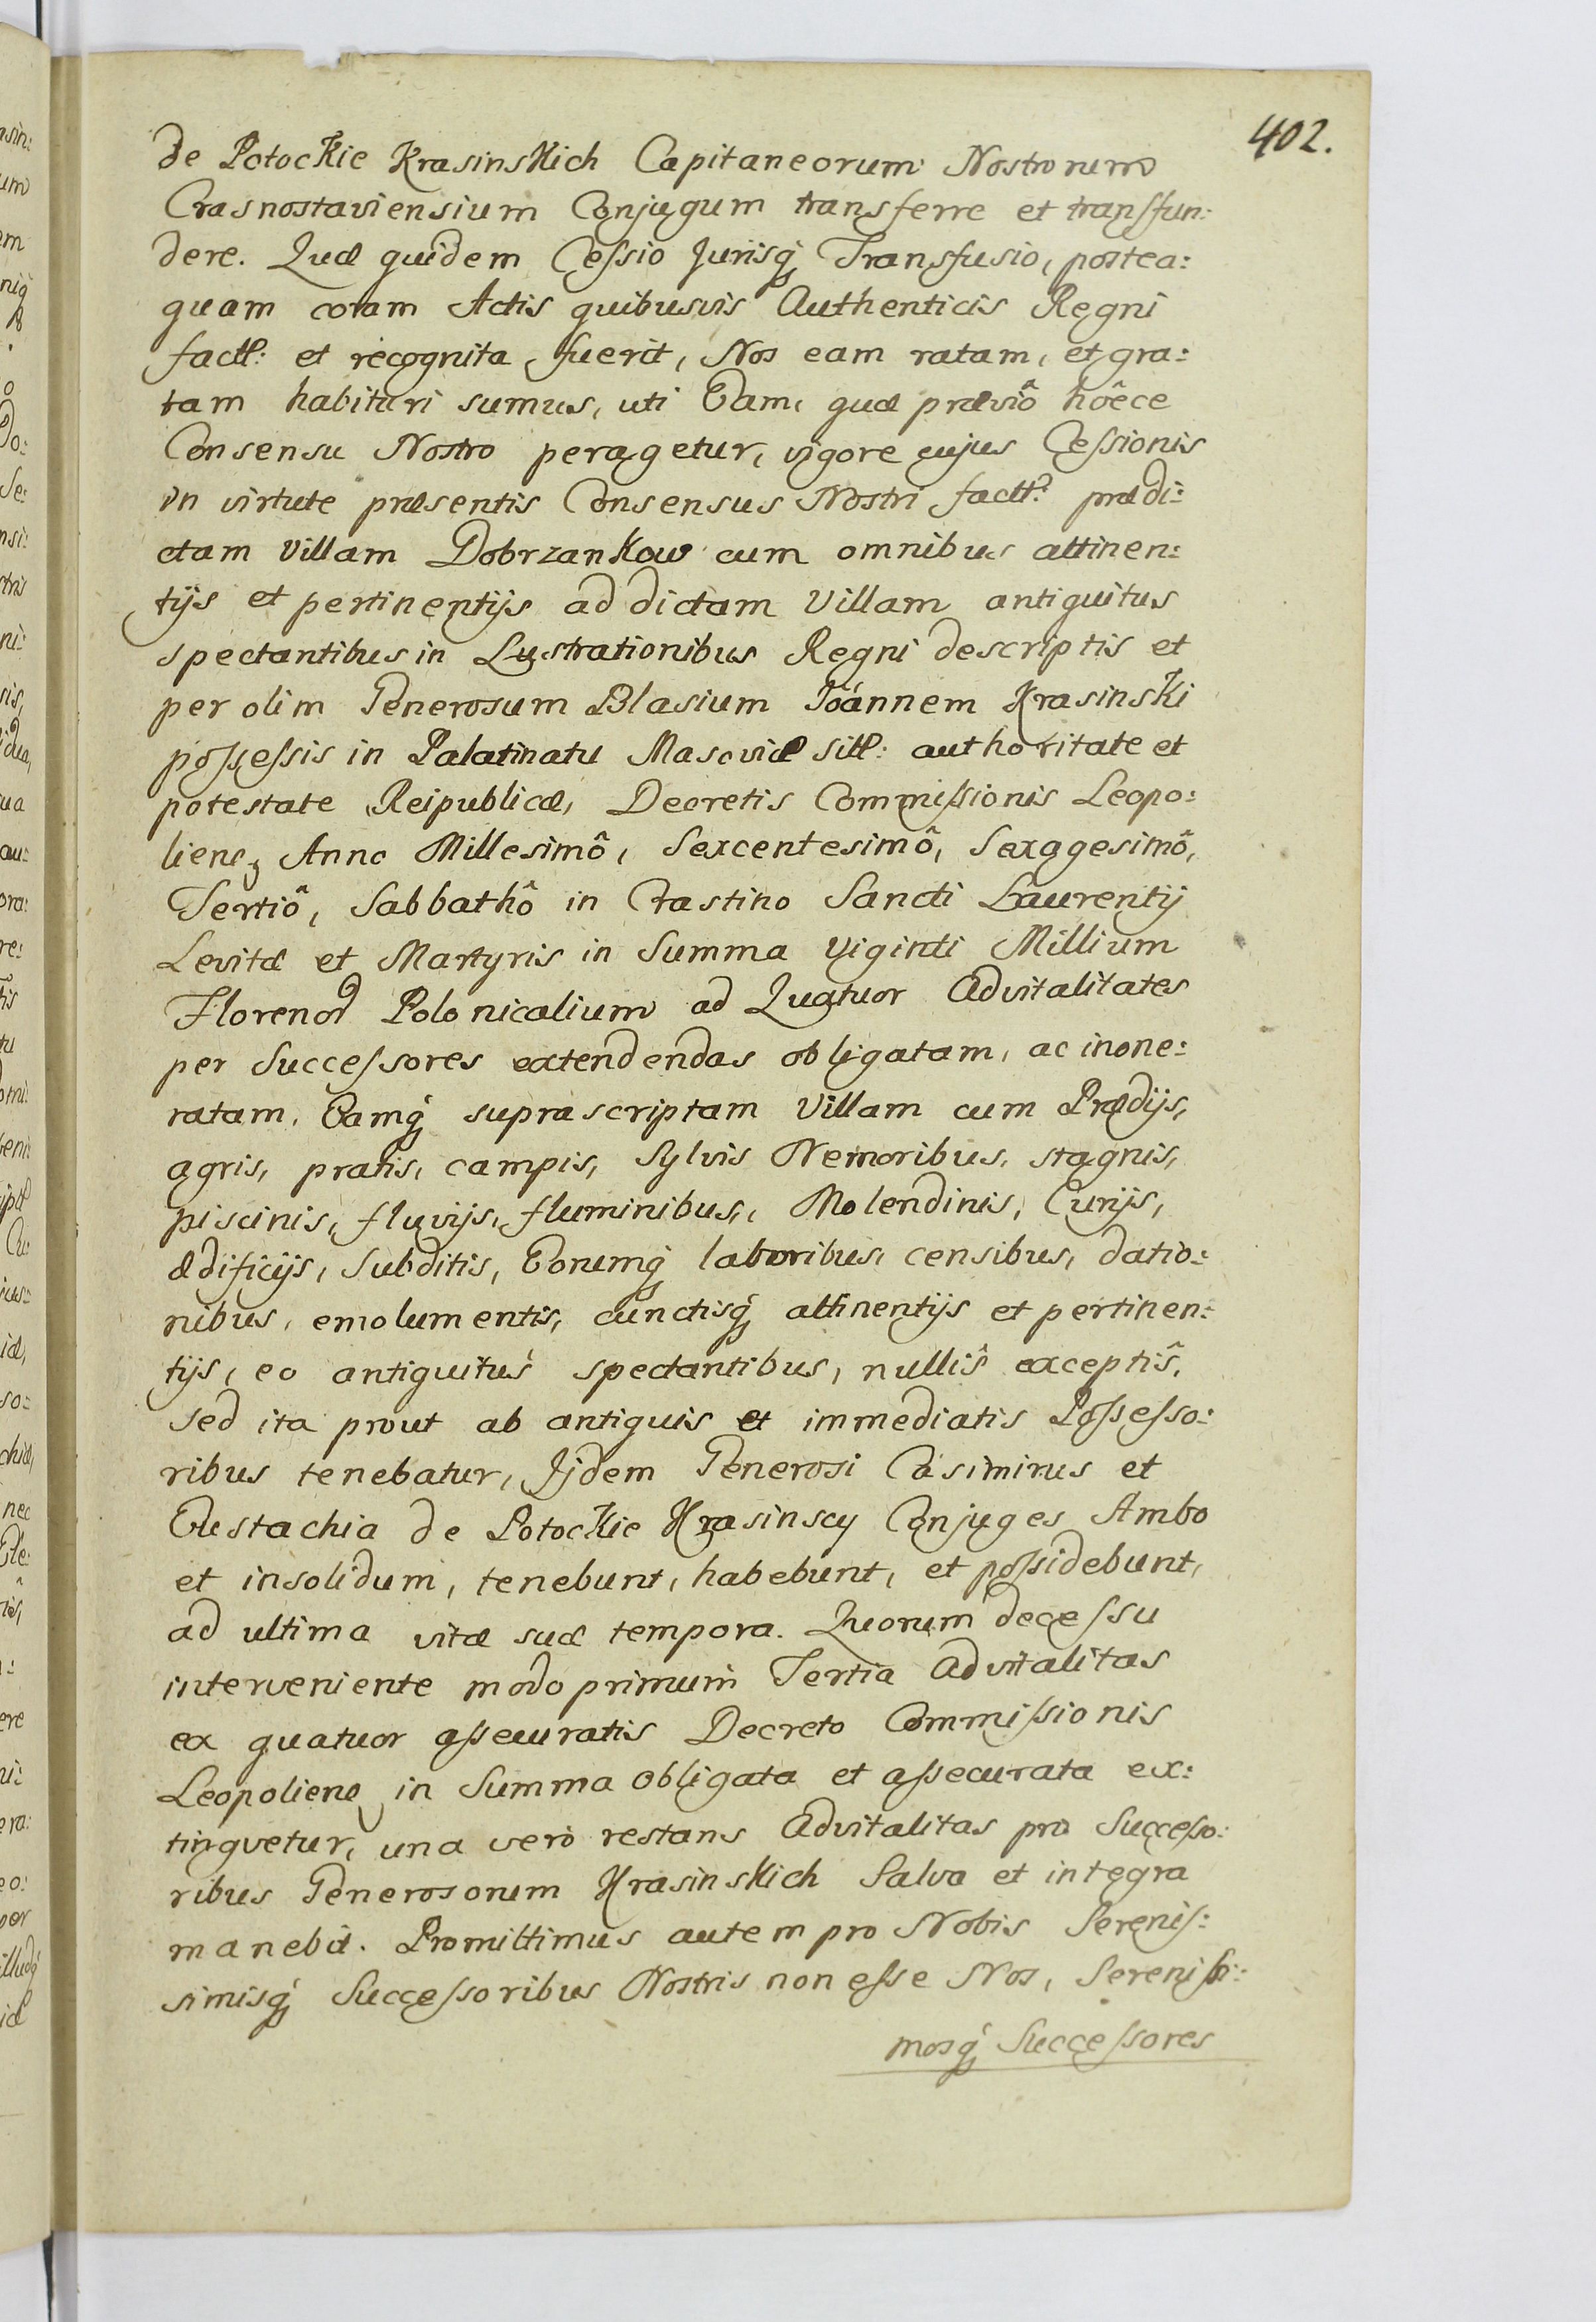 402.
de Potockie Krasinskich Capitaneorum Nostrorum
Crasnostaviensium Conjugum transferre et transfun:
dere. Quæ quidem Cessio Jurisq́ Transfusio, postea:
quam coram Actis quibusvis Authenticis Regni
fact: et recognita fuerit, Nos eam ratam, et gra:
tam habituri sumus, uti Eam, quæ præviô hôcce
Consensu Nostro peragetur, vigore cujus Cessionis
in virtute præsentis Consensus Nostri fact: prædi:
ctam Villam Dobrzankow cum omnibus attinen:
tijs et pertinentijs ad dictam Villam antiquitus
spectantibus in Lustrationibus Regni descriptis et
per olim Generosum Blasium Joánnem Krasinski
possessis in Palatinatu Masoviæ sitt: authoritate et
potestate Reipublicæ, Decretis Commissionis Leopo:
liens Anno Millesimô, Sexcentesimô, Sexagesimô,
Tertiô, Sabbathô in Crastino Sancti Laurentij
Levitæ et Martyris in Summa Viginti Millium
Floren Polonicalium ad Quatuor Advitalitates
per Successores extendendas obligatam, ac inone:
ratam. Eamq́ suprascriptam Villam cum Prædijs,
agris, pratis, campis, Sylvis Nemoribus, stagnis,
piscinis, fluvijs, fluminibus, Molendinis, Curijs,
ædificijs, Subditis, Eorumq́ laboribus, censibus, datio:
nibus, emolumentis, cunctisq́ attinentijs et pertinen:
tijs, eo antiquitus spectantibus, nullis exceptis,
sed ita prout ab antiquis et immediatis Possesso:
ribus tenebatur, Ijdem Generosi Casimirus et
Eustachia de Potockie Krasinscy Conjuges Ambo
et insolidum, tenebunt, habebunt, et possidebunt,
ad ultima vitæ suæ tempora. Quorum decessu
interveniente modo primum Tertia Advitalitas
ex quatuor assecuratis Decreto Commissionis
Leopoliens in Summa obligata et assecurata ex:
tinguetur, una verò restans Advitalitas pro Successo:
ribus Generosorum Krasinskich Salva et integra
manebit. Promittimus autem pro Nobis Serenis:
simisq́ Successoribus Nostris non esse Nos, Serenissi:
mosq́ Successores